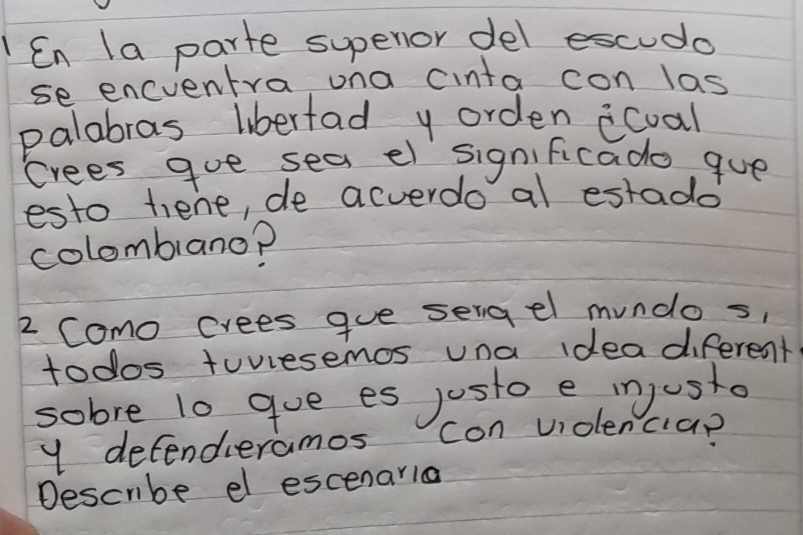 1 En la parte superior del escudo
se encuentra una cinta con las
palabras libertad y orden ¿cual
crees que sea el significado que
esto tiene, de acuerdo al estado
colombiano?
2 Como crees que seria el mundo si
todos tuviesemos una idea diferente
sobre lo que es justo e injusto
y defendieramos con violencia?
Describe el escenario